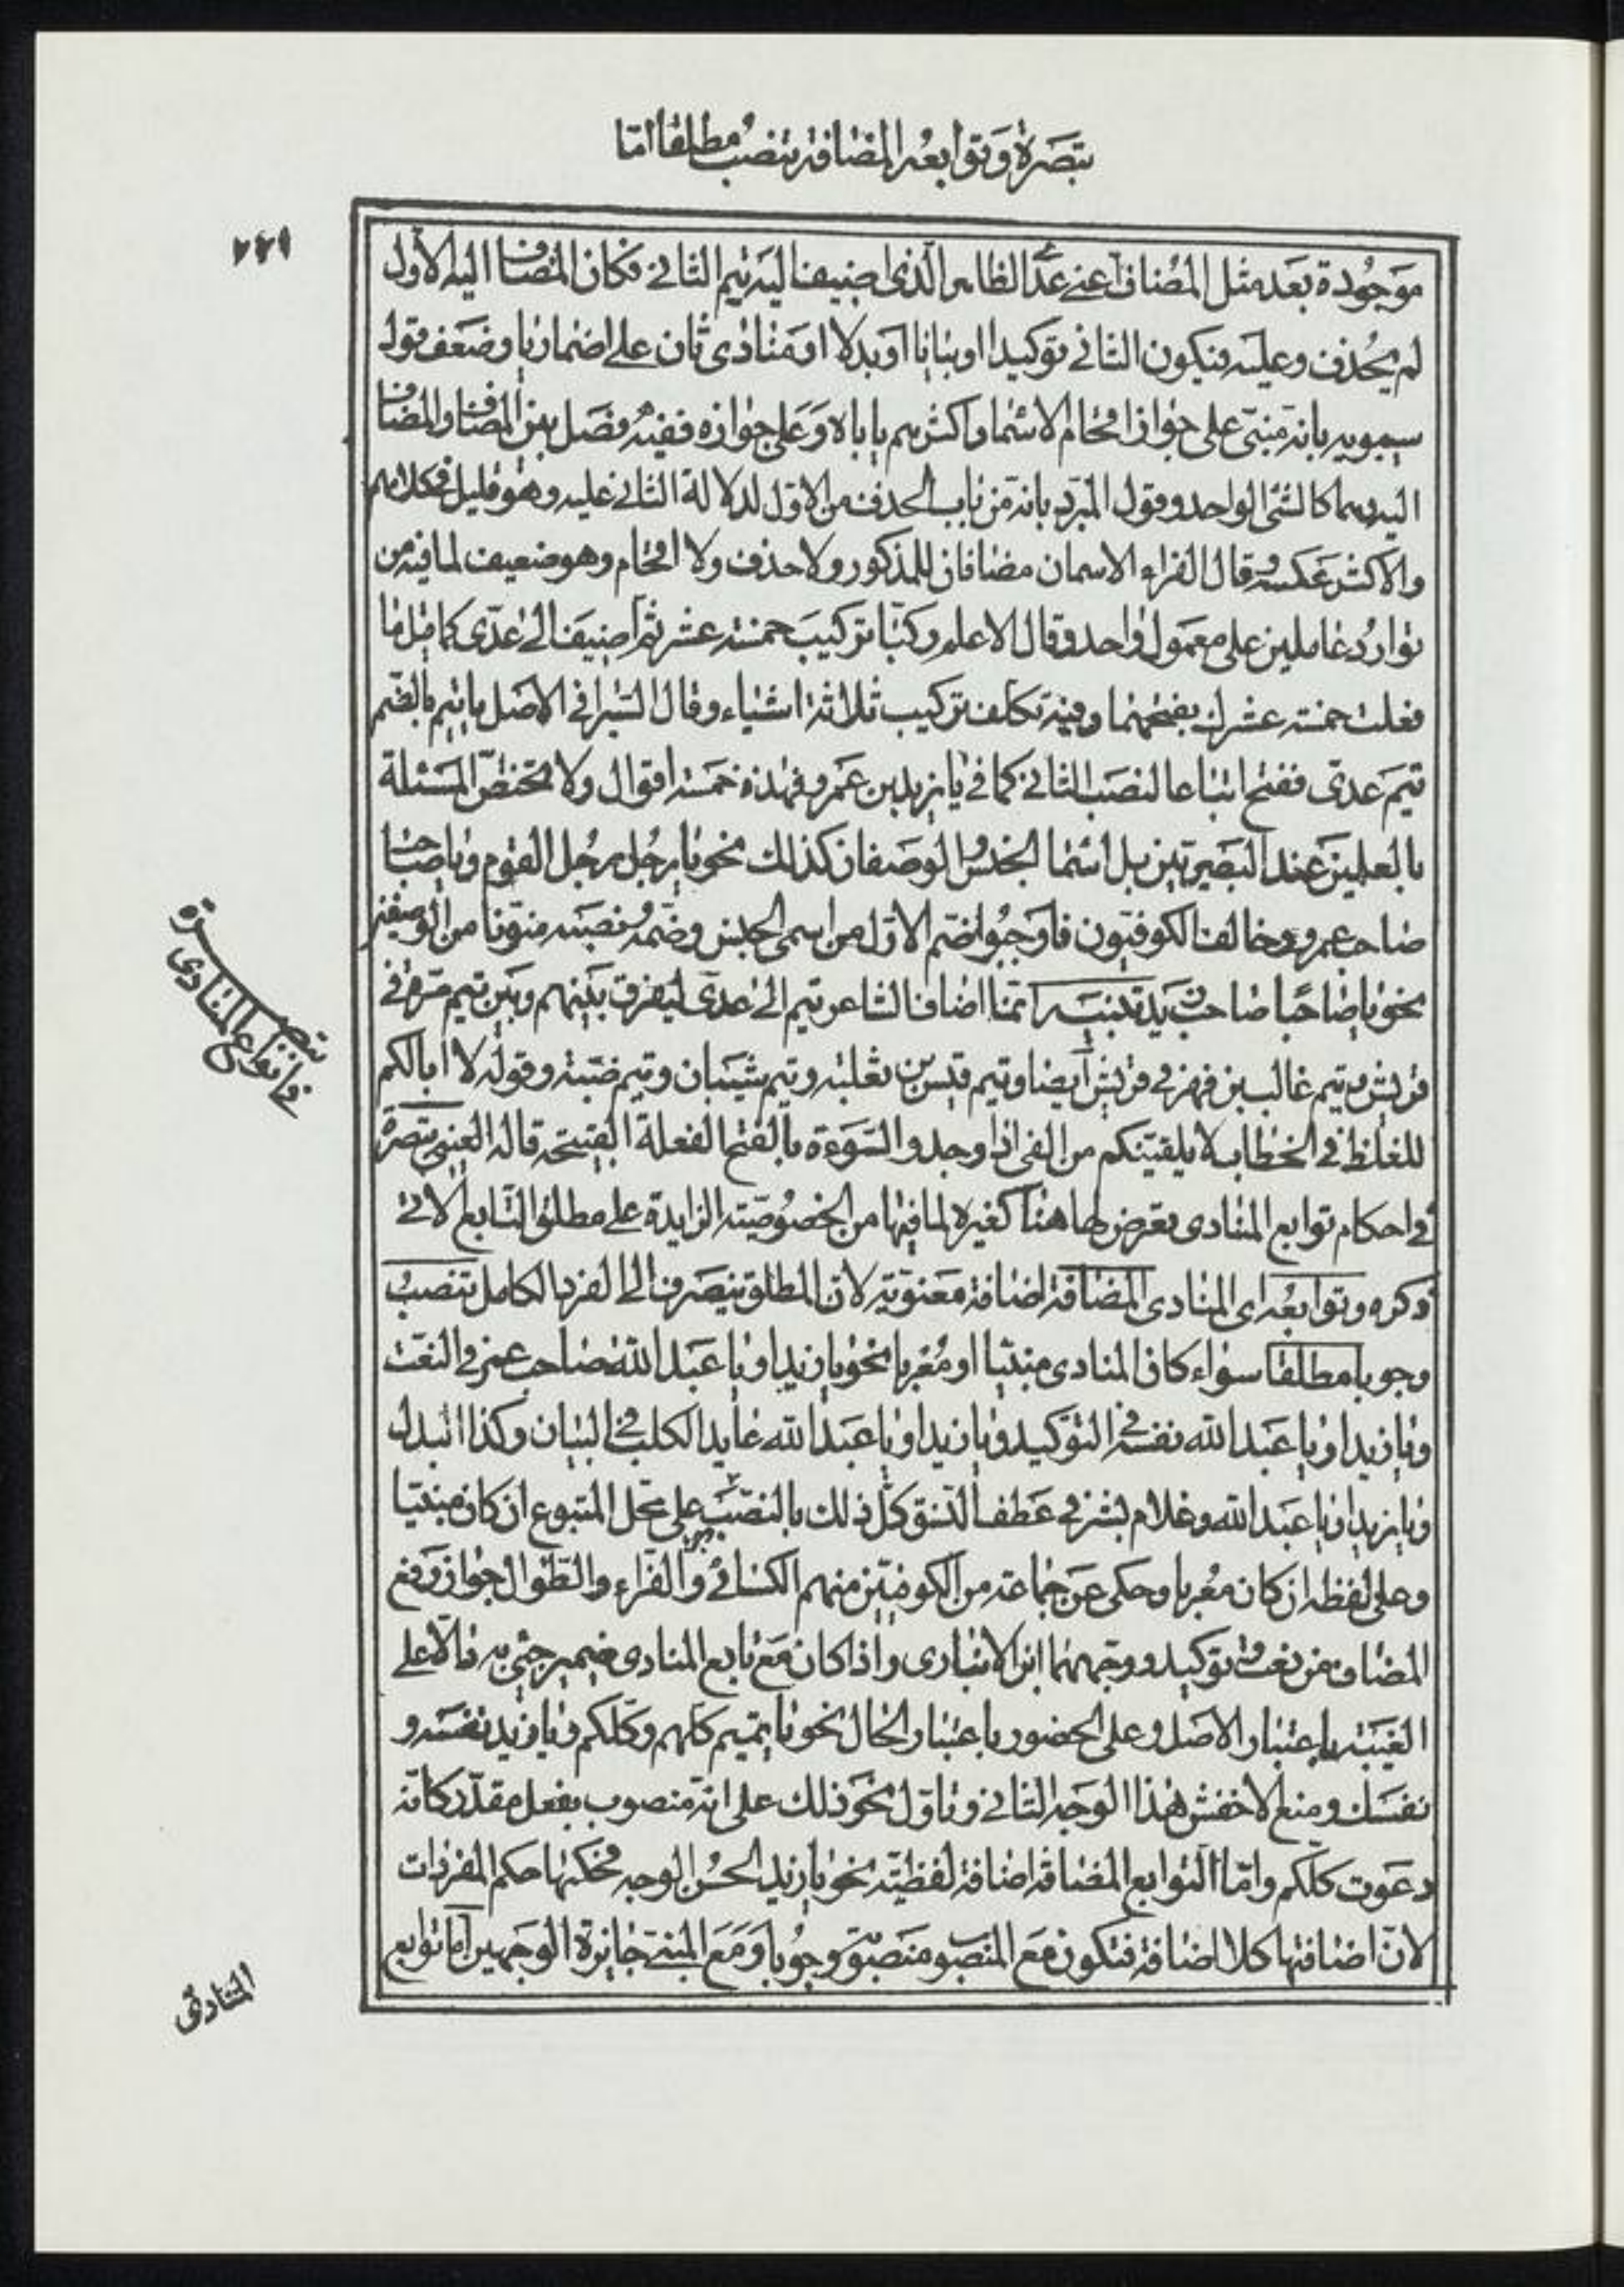 تبصرة وتوابعه المضافة تنصب مطلقا امّا
۲۲۱
موجودة بعده مثل المضاف اعني عدّ الظاهر الّذي اضيف اليه تيم الثاني فكان المضاف اليه الاول
لم يحذف وعليه فيكون الثاني توكيدا او بيانا او بدلا او منادى ثان على اضمار يا وضعّف قول
سيبويه بانه مبنيّ على جواز اقحام الاسماء واكثرهم ياباه وعلى جوازه ففيه فصل بين المضاف والمضاف
اليه وهما كالشئ الواحد وقول المبرّد بانه من باب الحذف من الاول لدلالة الثاني عليه وهو قليل في كلامهم
والاكثر عكسه وقال الفراء الاسمان مضافان للمذكور ولا حذف ولا اقحام وهو ضعيف لما فيه من
توارد عاملين على معمول واحد وقال الاعلم وركبا تركيب خمسة عشر ثم اضيفا الى عدّي كما قيل ما
فعلت خمسة عشرك بفتحهما وفيه تكلف تركيب ثلاثة اشياء وقال السيرافي الاصل يا تيم بالضّم
تيم عدّي ففتح اتباعا لنصب الثاني كما في يا زيد بن عمرو فهذه خمسة اقوال ولا تختص المسئلة
بالعلمين عند البصريين بل اسما الجنس والوصفان كذلك نحو يا رجل رجل القوم ويا صاحب
صاحب عمرو وخالف الكوفيون فاوجبوا ضم الاول من اسمى الجنس وضمه ونصبه منونا من الوصفين
نحو يا صاحبا صاحب زيد تنبيه انما اضاف الشاعر تيم الى عدى ليفرق بينهم وبين تيم مرة في
قريش وتيم غالب بن فهر في قريش ايضا وتيم قيس بن ثعلبة وتيم شيبان وتيم ضبة وقوله لا ابالكم
للغلظ في الخطاب لا يلقينكم من الفى اذا وجد والسّوءة بالفتح الفعلة القبيحة قاله العيني تبصرة
في احكام توابع المنادى تعرض لها هنا كغيره لما فيها من الخصوصيّة الزايدة على مطلق التابع الاتي
ذكره وتوابعه اى المنادى المضافة اضافة معنوية لان المطلق ينصرف الى الفرد الكامل تنصب
وجوبا مطلقا سواء كان المنادى مبنيّا او معربا نحو يا زيد او يا عبد الله صاحب عمرو في النعت
ويا زيد او يا عبد الله نفسه في التوكيد ويا زيد او يا عبد الله عايد الكلب في البيان وكذا البدل
ويا زيد او يا عبد الله وغلام بشر في عطف النسق كل ذلك بالنصب على محل المتبوع ان كان مبنيّا
وعلى لفظه ان كان معربا وحكى عن جماعة من الكوفيين منهم الكسائي والفراء والطوال جواز رفع
المضاف من نعت وتوكيد ووجههما ابن الانبارى واذا كان مع تابع المنادى ضمير جئ به دالا على
الغيبة باعتبار الاصل وعلى الحضور باعتبار الحال نحو يا تميم كلهم وكلكم ويا زيد نفسه و
نفسك ومنع الاخفش هذا الوجه الثاني وتاول نحو ذلك على انه منصوب بفعل مقدّر كانه
دعوت كلكم وامّا التوابع المضافة اضافة لفظيّة نحو يا زيد الحسن الوجه فحكمها حكم المفردات
لانّ اضافتها كلا اضافة فتكون مع المنصوب منصوبة وجوبا ومع المبني جايزة الوجهين امّا توابع
تبصرة
في توابع المنادى
المنادى